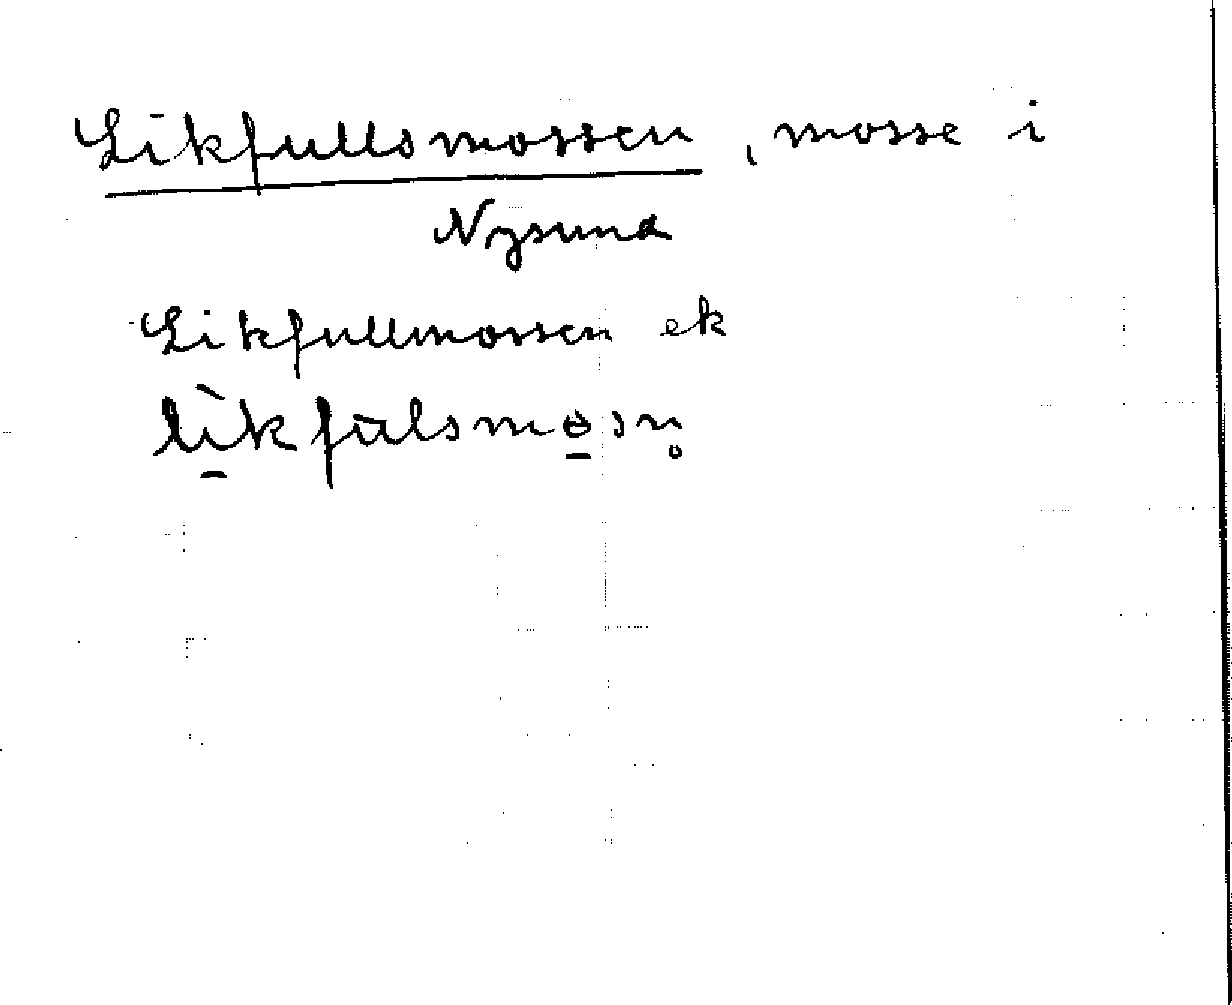 Likfullsmossen, mosse i
Nysund
Likfullmossen ek
lì̱kfulsmo̱sn̥